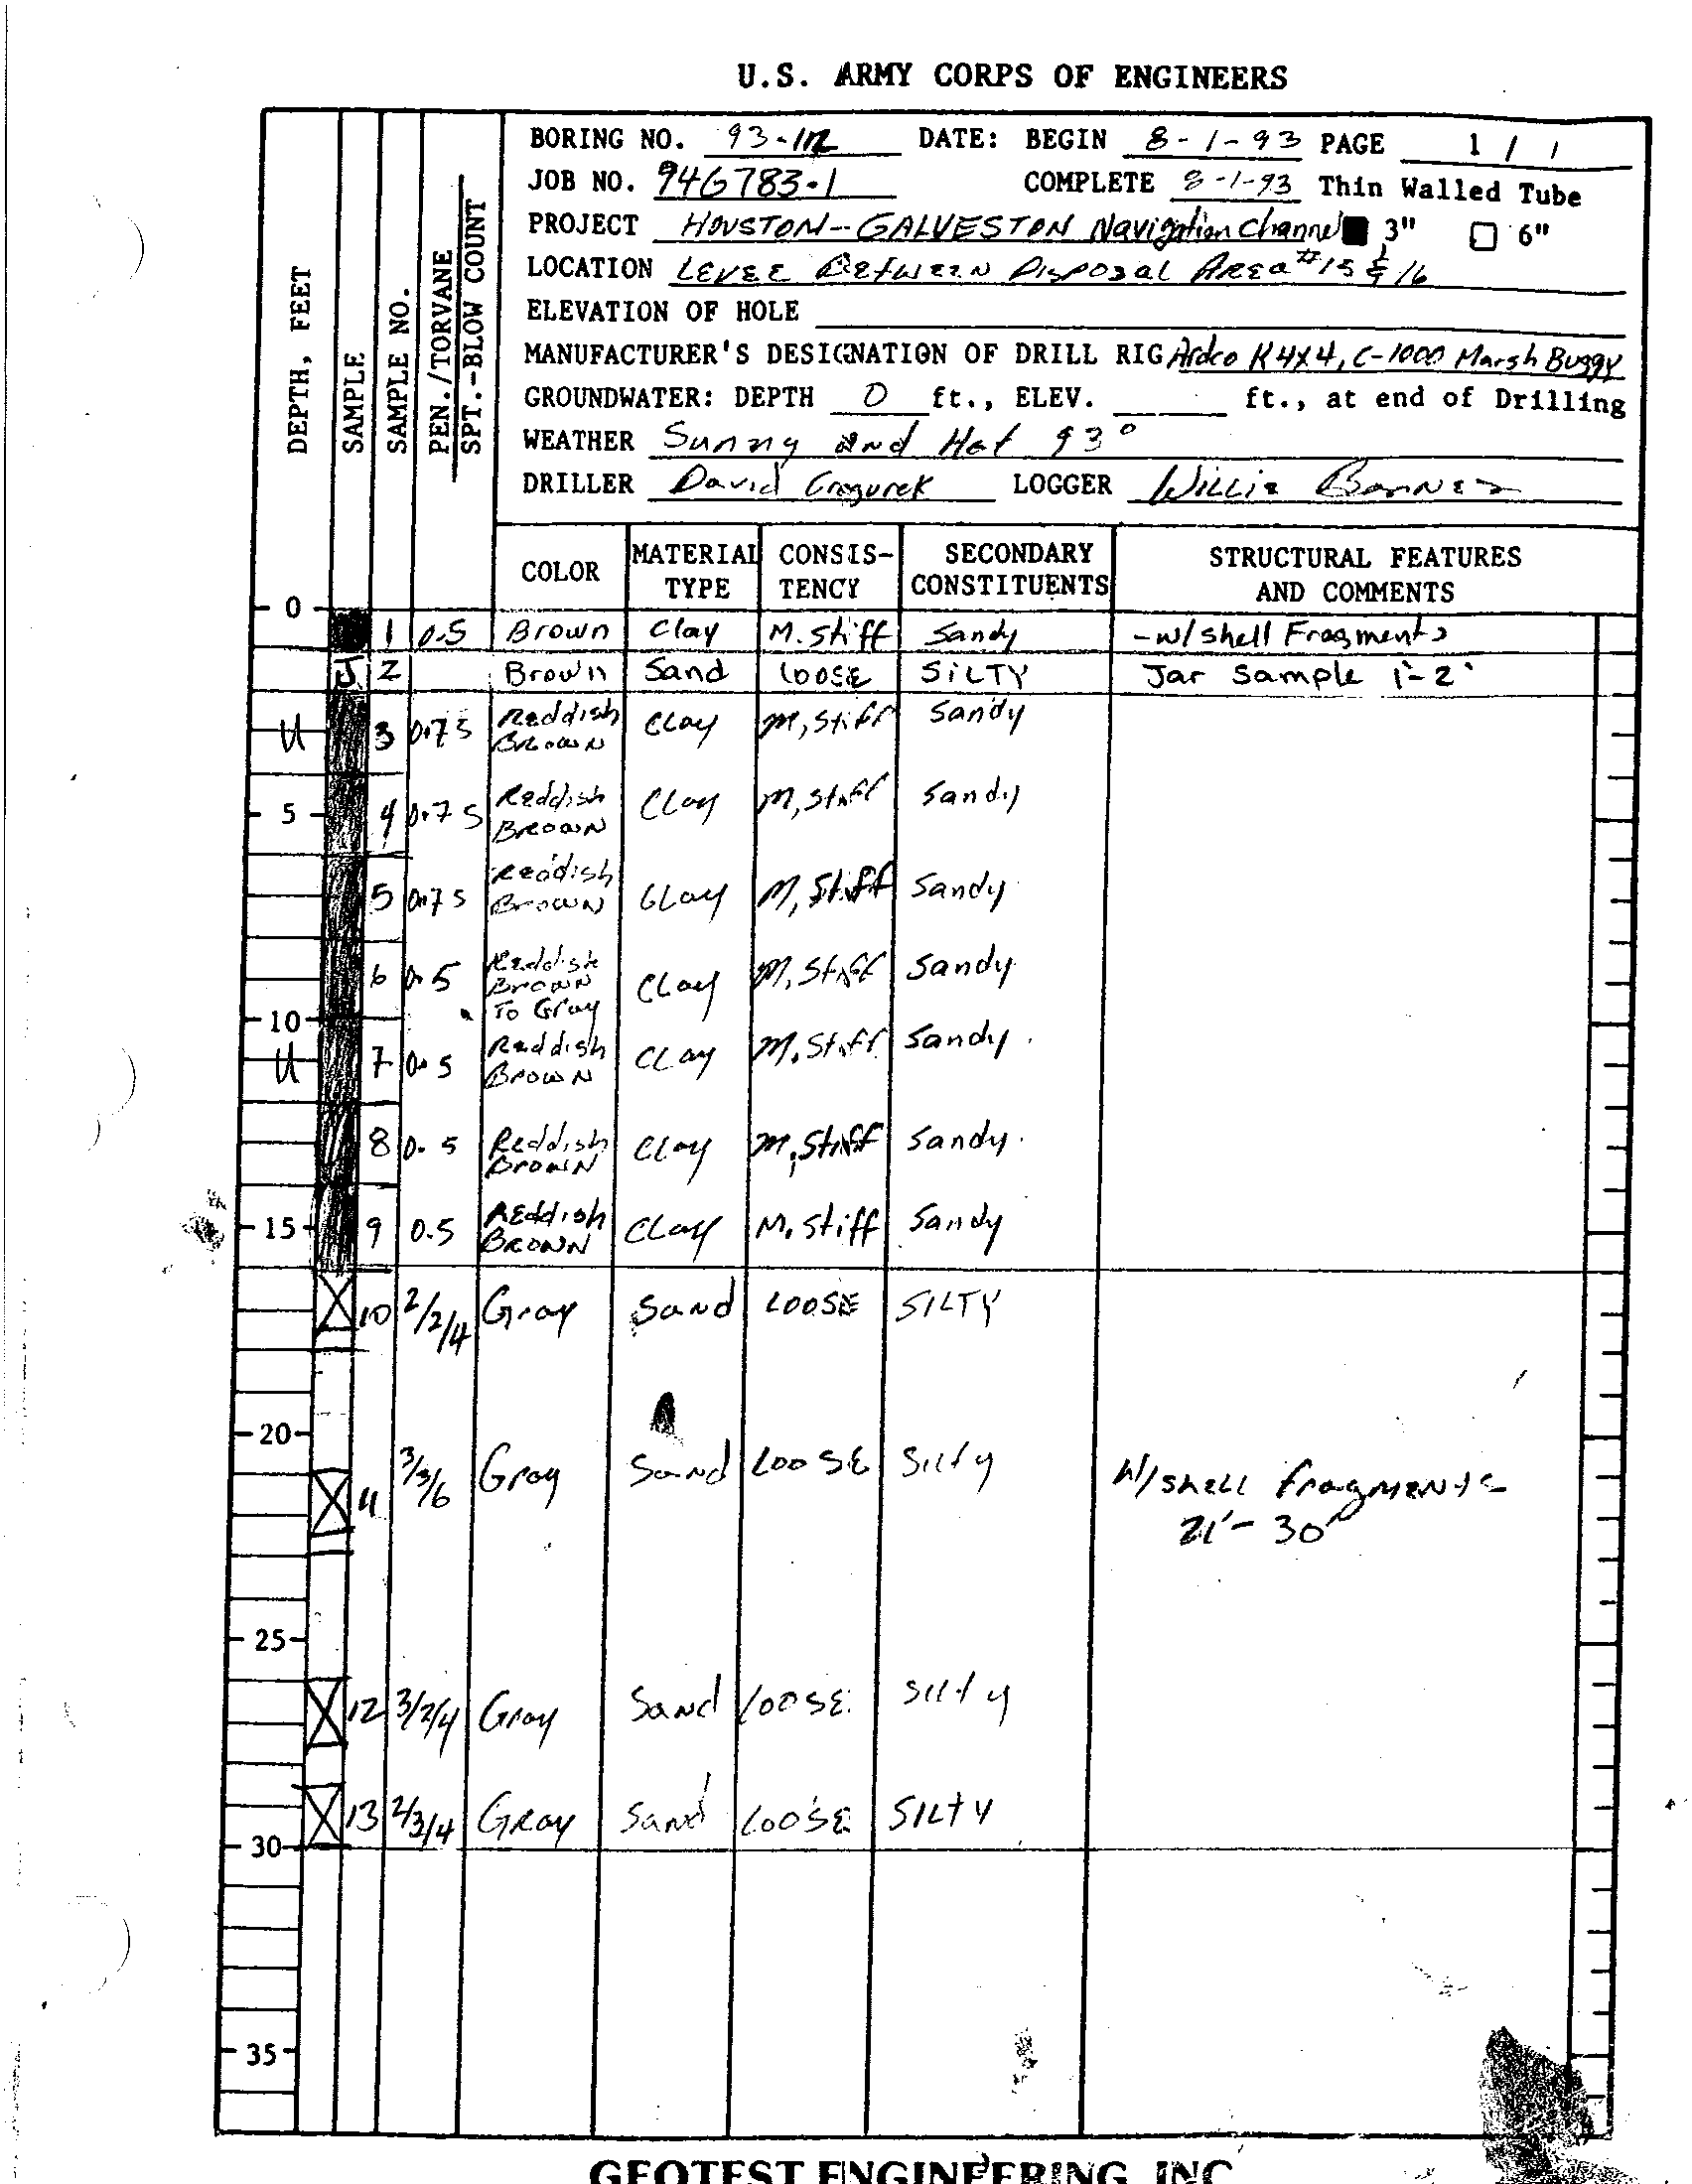 U.S. ARMY CORPS OF ENGINEERS
BORING NO. 93-112 DATE: BEGIN 8-1-93 PAGE 1 / 1
JOB NO. 94G783-1 COMPLETE 8-1-93 Thin Walled Tube
PROJECT HOUSTON--GALVESTON Navigation Channel 3" 6"
LOCATION LEVEE BETWEEN DISPOSAL AREA #15 & 16
ELEVATION OF HOLE
MANUFACTURER'S DESIGNATION OF DRILL RIG Ardco K4X4, C-1000 Marsh Buggy
GROUNDWATER: DEPTH 0 ft., ELEV. ft., at end of Drilling
WEATHER Sunny and Hot 93°
DRILLER David LOGGER WILLIE
DEPTH, FEET
SAMPLE
SAMPLE NO.
PEN./TORVANE
SPT.-BLOW COUNT
COLOR MATERIAL TYPE CONSIS-TENCY SECONDARY CONSTITUENTS STRUCTURAL FEATURES AND COMMENTS
0
1 0.5 Brown Clay M. Stiff Sandy -w/ shell Fragments
J 2 Brown Sand LOOSE SILTY Jar Sample 1'-2'
U 3 0.75 Reddish BROWN CLay M, Stiff Sandy
5 4 0.75 Reddish BROWN CLay M, Stiff Sandy
5 0.75 Reddish BROWN CLay M, Stiff Sandy
6 0.5 Reddish Brown To Gray CLay M, Stiff Sandy
10
U 7 0.5 Reddish BROWN CLay M. Stiff Sandy
8 0.5 Reddish BROWN CLay M, Stiff Sandy
15 9 0.5 REddish BROWN CLay M. Stiff Sandy
10 2/2/4 Gray Sand LOOSE SILTY
20
11 3/3/6 Gray Sand LOOSE SILTY W/ SHELL fragments
21'- 30'
25
12 3/2/4 Gray Sand LOOSE SILTY
13 2/3/4 GRay Sand LOOSE SILTY
30
35
GEOTEST ENGINEERING, INC